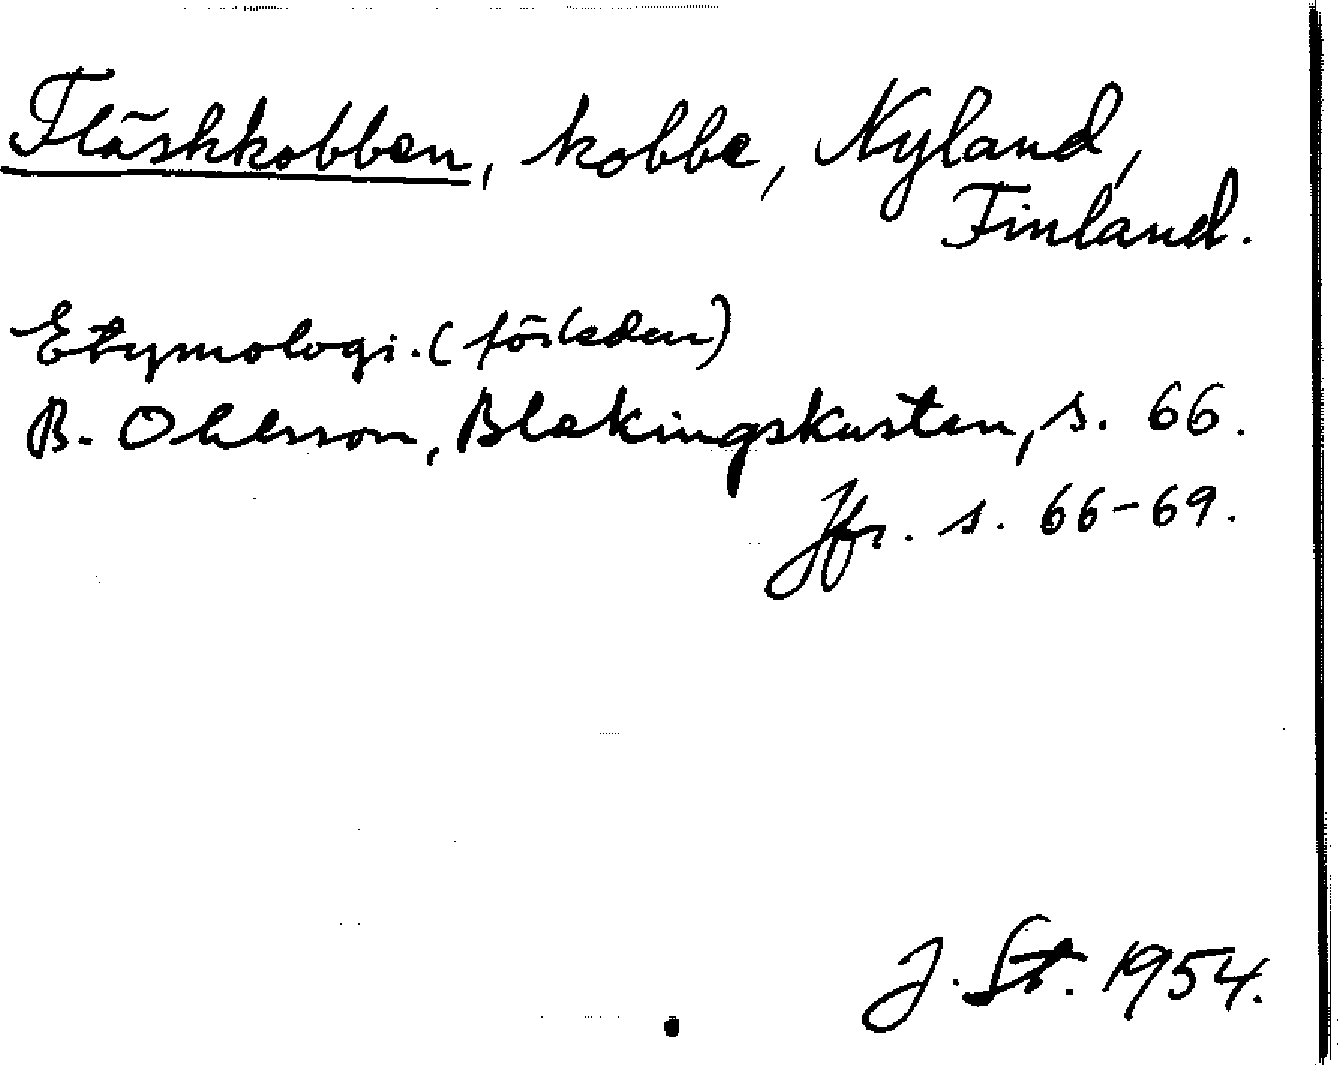 Fläskkobben, kobbe, Nyland,
Finland.
Etymologi. (förleden)
B. Ohlsson, Blekingskusten, s. 66.
Jfr. s. 66-69.
J. St. 1954.